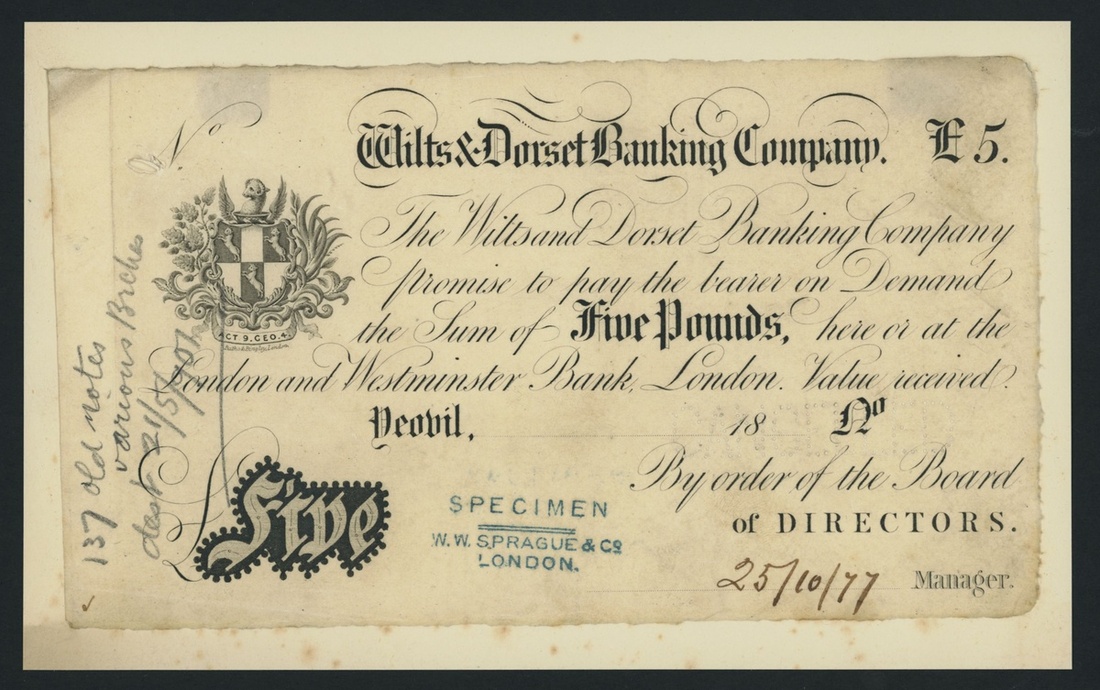 No
Wilts & Dorset Banking Company. £5.
The Wilts and Dorset Banking Company
promise to pay the bearer on Demand
the Sum of Five Pounds, here or at the
London and Westminster Bank, London. Value received.
Yeovil, 18 No
By order of the Board
of DIRECTORS.
25/10/77 Manager.
ACT 9. GEO. 4.
£ Five
SPECIMEN
W. W. SPRAGUE & Co
LONDON.
137 old notes
various